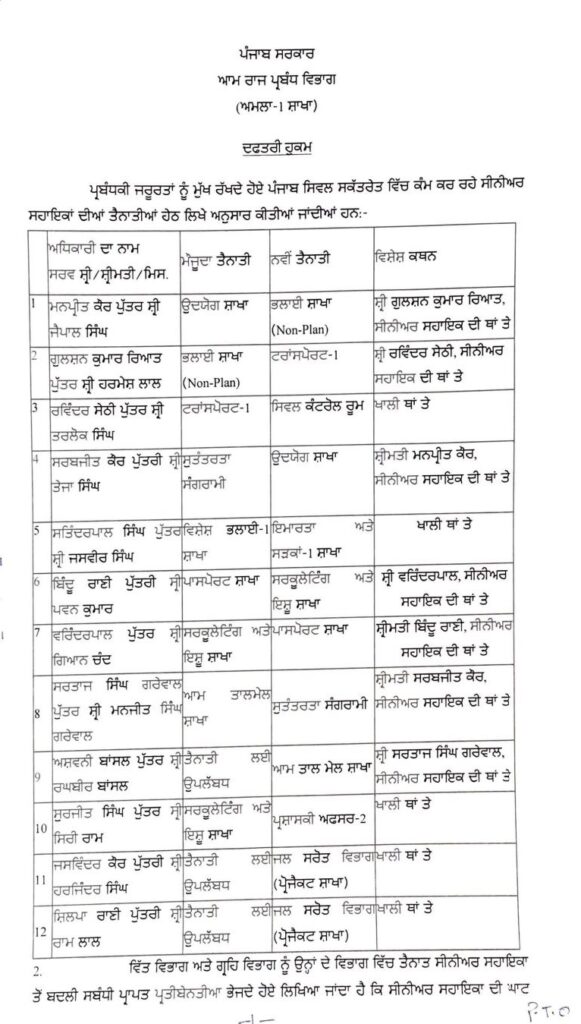 ਪੰਜਾਬ ਸਰਕਾਰ
ਆਮ ਰਾਜ ਪ੍ਰਬੰਧ ਵਿਭਾਗ
(ਅਮਲਾ-1 ਸ਼ਾਖਾ)
ਦਫਤਰੀ ਹੁਕਮ
ਪ੍ਰਬੰਧਕੀ ਜਰੂਰਤਾਂ ਨੂੰ ਮੁੱਖ ਰੱਖਦੇ ਹੋਏ ਪੰਜਾਬ ਸਿਵਲ ਸਕੱਤਰੇਤ ਵਿੱਚ ਕੰਮ ਕਰ ਰਹੇ ਸੀਨੀਅਰ
ਸਹਾਇਕਾਂ ਦੀਆਂ ਤੈਨਾਤੀਆਂ ਹੇਠ ਲਿਖੇ ਅਨੁਸਾਰ ਕੀਤੀਆਂ ਜਾਂਦੀਆਂ ਹਨ:-
ਅਧਿਕਾਰੀ ਦਾ ਨਾਮ
ਸਰਵ ਸ਼੍ਰੀ/ਸ਼੍ਰੀਮਤੀ/ਮਿਸ. ਮੌਜੂਦਾ ਤੈਨਾਤੀ ਨਵੀਂ ਤੈਨਾਤੀ ਵਿਸ਼ੇਸ਼ ਕਥਨ
1 ਮਨਪ੍ਰੀਤ ਕੌਰ ਪੁੱਤਰ ਸ਼੍ਰੀ ਉਦਯੋਗ ਸ਼ਾਖਾ ਭਲਾਈ ਸ਼ਾਖਾ ਸ਼੍ਰੀ ਗੁਲਸ਼ਨ ਕੁਮਾਰ ਰਿਆਤ,
ਜੈਪਾਲ ਸਿੰਘ (Non-Plan) ਸੀਨੀਅਰ ਸਹਾਇਕ ਦੀ ਥਾਂ ਤੇ
2 ਗੁਲਸ਼ਨ ਕੁਮਾਰ ਰਿਆਤ ਭਲਾਈ ਸ਼ਾਖਾ ਟਰਾਂਸਪੋਰਟ-1 ਸ਼੍ਰੀ ਰਵਿੰਦਰ ਸੇਠੀ, ਸੀਨੀਅਰ
ਪੁੱਤਰ ਸ਼੍ਰੀ ਹਰਮੇਸ਼ ਲਾਲ (Non-Plan) ਸਹਾਇਕ ਦੀ ਥਾਂ ਤੇ
3 ਰਵਿੰਦਰ ਸੇਠੀ ਪੁੱਤਰ ਸ਼੍ਰੀ ਟਰਾਂਸਪੋਰਟ-1 ਸਿਵਲ ਕੰਟਰੋਲ ਰੂਮ ਖਾਲੀ ਥਾਂ ਤੇ
ਤਰਲੋਕ ਸਿੰਘ
4 ਸਰਬਜੀਤ ਕੌਰ ਪੁੱਤਰੀ ਸ਼੍ਰੀ ਸੁਤੰਤਰਤਾ ਉਦਯੋਗ ਸ਼ਾਖਾ ਸ਼੍ਰੀਮਤੀ ਮਨਪ੍ਰੀਤ ਕੌਰ,
ਤੇਜਾ ਸਿੰਘ ਸੰਗਰਾਮੀ ਸੀਨੀਅਰ ਸਹਾਇਕ ਦੀ ਥਾਂ ਤੇ
5 ਸਤਿੰਦਰਪਾਲ ਸਿੰਘ ਪੁੱਤਰ ਵਿਸ਼ੇਸ਼ ਭਲਾਈ-1 ਇਮਾਰਤਾ ਅਤੇ ਖਾਲੀ ਥਾਂ ਤੇ
ਸ਼੍ਰੀ ਜਸਵੀਰ ਸਿੰਘ ਸ਼ਾਖਾ ਸੜਕਾਂ-1 ਸ਼ਾਖਾ
6 ਬਿੰਦੂ ਰਾਣੀ ਪੁੱਤਰੀ ਸ਼੍ਰੀ ਪਾਸਪੋਰਟ ਸ਼ਾਖਾ ਸਰਕੂਲੇਟਿੰਗ ਅਤੇ ਸ਼੍ਰੀ ਵਰਿੰਦਰਪਾਲ, ਸੀਨੀਅਰ
ਪਵਨ ਕੁਮਾਰ ਇਸ਼ੂ ਸ਼ਾਖਾ ਸਹਾਇਕ ਦੀ ਥਾਂ ਤੇ
7 ਵਰਿੰਦਰਪਾਲ ਪੁੱਤਰ ਸ਼੍ਰੀ ਸਰਕੂਲੇਟਿੰਗ ਅਤੇ ਪਾਸਪੋਰਟ ਸ਼ਾਖਾ ਸ਼੍ਰੀਮਤੀ ਬਿੰਦੂ ਰਾਣੀ, ਸੀਨੀਅਰ
ਗਿਆਨ ਚੰਦ ਇਸ਼ੂ ਸ਼ਾਖਾ ਸਹਾਇਕ ਦੀ ਥਾਂ ਤੇ
8 ਸਰਤਾਜ ਸਿੰਘ ਗਰੇਵਾਲ ਆਮ ਤਾਲਮੇਲ ਸੁਤੰਤਰਤਾ ਸੰਗਰਾਮੀ ਸ਼੍ਰੀਮਤੀ ਸਰਬਜੀਤ ਕੌਰ,
ਪੁੱਤਰ ਸ਼੍ਰੀ ਮਨਜੀਤ ਸਿੰਘ ਸ਼ਾਖਾ ਸੀਨੀਅਰ ਸਹਾਇਕ ਦੀ ਥਾਂ ਤੇ
ਗਰੇਵਾਲ
9 ਅਸ਼ਵਨੀ ਬਾਂਸਲ ਪੁੱਤਰ ਸ਼੍ਰੀ ਤੈਨਾਤੀ ਲਈ ਆਮ ਤਾਲ ਮੇਲ ਸ਼ਾਖਾ ਸ਼੍ਰੀ ਸਰਤਾਜ ਸਿੰਘ ਗਰੇਵਾਲ,
ਰਘਬੀਰ ਬਾਂਸਲ ਉਪਲੱਬਧ ਸੀਨੀਅਰ ਸਹਾਇਕ ਦੀ ਥਾਂ ਤੇ
10 ਸੁਰਜੀਤ ਸਿੰਘ ਪੁੱਤਰ ਸ਼੍ਰੀ ਸਰਕੂਲੇਟਿੰਗ ਅਤੇ ਪ੍ਰਸ਼ਾਸਕੀ ਅਫਸਰ-2 ਖਾਲੀ ਥਾਂ ਤੇ
ਸਿਰੀ ਰਾਮ ਇਸ਼ੂ ਸ਼ਾਖਾ
11 ਜਸਵਿੰਦਰ ਕੌਰ ਪੁੱਤਰੀ ਸ਼੍ਰੀ ਤੈਨਾਤੀ ਲਈ ਜਲ ਸਰੋਤ ਵਿਭਾਗ ਖਾਲੀ ਥਾਂ ਤੇ
ਹਰਜਿੰਦਰ ਸਿੰਘ ਉਪਲੱਬਧ (ਪ੍ਰੋਜੈਕਟ ਸ਼ਾਖਾ)
12 ਸ਼ਿਲਪਾ ਰਾਣੀ ਪੁੱਤਰੀ ਸ਼੍ਰੀ ਤੈਨਾਤੀ ਲਈ ਜਲ ਸਰੋਤ ਵਿਭਾਗ ਖਾਲੀ ਥਾਂ ਤੇ
ਰਾਮ ਲਾਲ ਉਪਲੱਬਧ (ਪ੍ਰੋਜੈਕਟ ਸ਼ਾਖਾ)
2. ਵਿੱਤ ਵਿਭਾਗ ਅਤੇ ਗ੍ਰਹਿ ਵਿਭਾਗ ਨੂੰ ਉਨ੍ਹਾਂ ਦੇ ਵਿਭਾਗ ਵਿੱਚ ਤੈਨਾਤ ਸੀਨੀਅਰ ਸਹਾਇਕਾ
ਤੋਂ ਬਦਲੀ ਸਬੰਧੀ ਪ੍ਰਾਪਤ ਪ੍ਰਤੀਬੇਨਤੀਆ ਭੇਜਦੇ ਹੋਏ ਲਿਖਿਆ ਜਾਂਦਾ ਹੈ ਕਿ ਸੀਨੀਅਰ ਸਹਾਇਕਾ ਦੀ ਘਾਟ
-1-
P.T.O